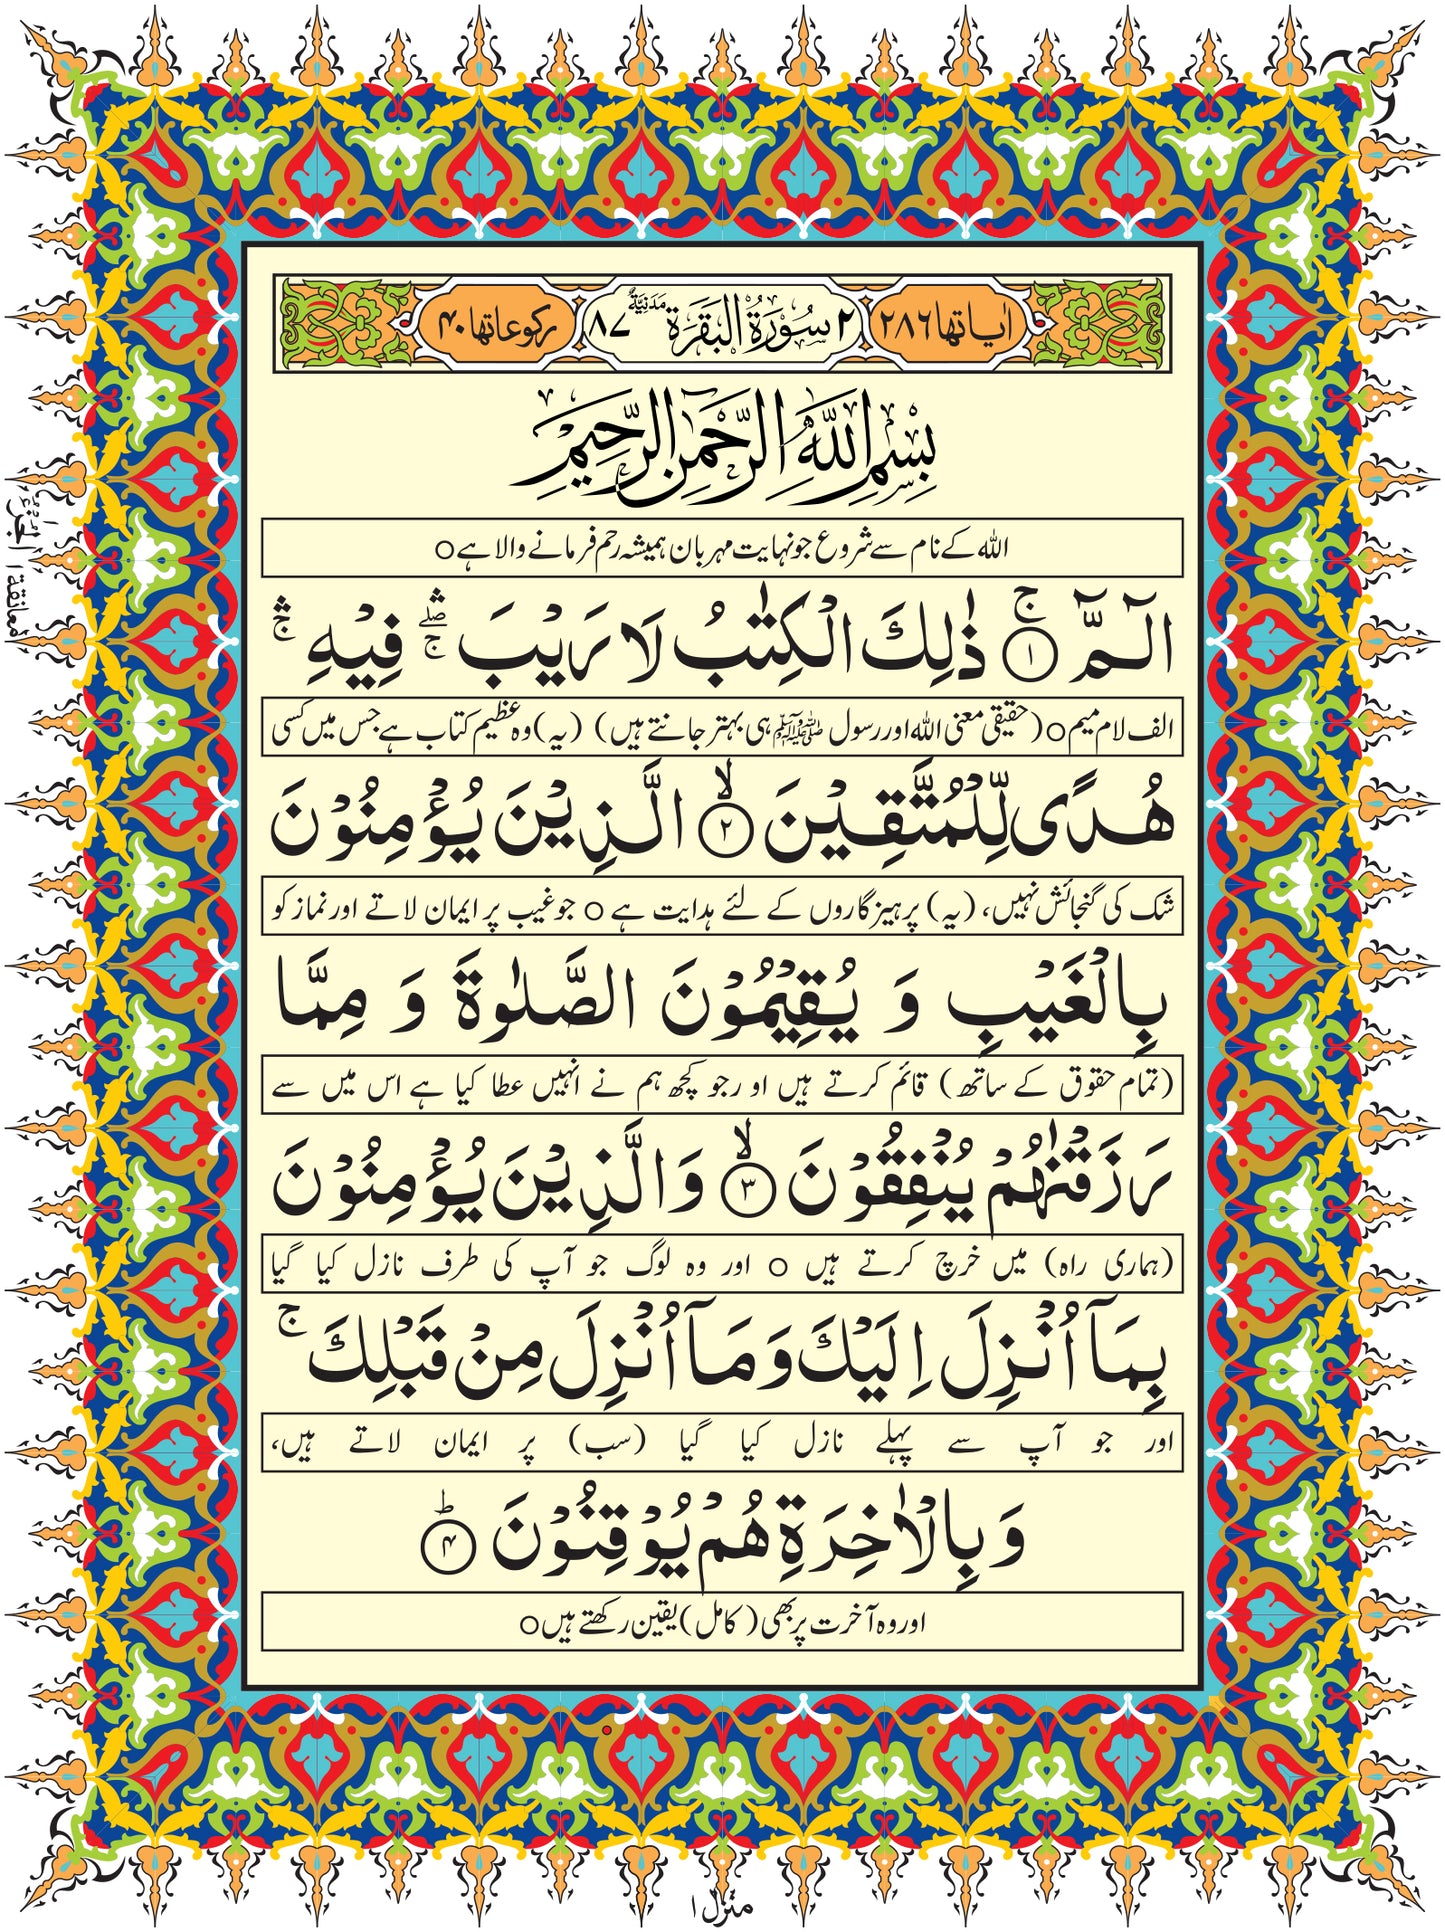 اٰیاتھا ۲۸۶ ۲ سُوْرَةُ الْبَقَرَةِ مَدَنِیَّةٌ ۸۷ رکوعاتھا ۴۰
بِسْمِ اللّٰهِ الرَّحْمٰنِ الرَّحِیْمِ
اللہ کے نام سے شروع جو نہایت مہربان ہمیشہ رحم فرمانے والا ہے o
الٓـمّٓ ۚ ﴿۱﴾ ذٰلِكَ الْكِتٰبُ لَا رَیْبَ ۛۖۚ فِیْهِ ۛۚ
الف لام میم o (حقیقی معنی اللہ اور رسول ﷺ ہی بہتر جانتے ہیں) (یہ) وہ عظیم کتاب ہے جس میں کسی
هُدًی لِّلْمُتَّقِیْنَ ۙ ﴿۲﴾ الَّذِیْنَ یُؤْمِنُوْنَ
شک کی گنجائش نہیں، (یہ) پرہیزگاروں کے لئے ہدایت ہے o جو غیب پر ایمان لاتے اور نماز کو
بِالْغَیْبِ وَ یُقِیْمُوْنَ الصَّلٰوةَ وَ مِمَّا
(تمام حقوق کے ساتھ) قائم کرتے ہیں او رجو کچھ ہم نے انہیں عطا کیا ہے اس میں سے
رَزَقْنٰهُمْ یُنْفِقُوْنَ ۙ ﴿۳﴾ وَ الَّذِیْنَ یُؤْمِنُوْنَ
(ہماری راہ) میں خرچ کرتے ہیں o اور وہ لوگ جو آپ کی طرف نازل کیا گیا
بِمَاۤ اُنْزِلَ اِلَیْكَ وَ مَاۤ اُنْزِلَ مِنْ قَبْلِكَ ۚ
اور جو آپ سے پہلے نازل کیا گیا (سب) پر ایمان لاتے ہیں،
وَ بِالْاٰخِرَةِ هُمْ یُوْقِنُوْنَ ؕ ﴿۴﴾
اور وہ آخرت پر بھی (کامل) یقین رکھتے ہیں o
معانقة ۱
منزل ۱